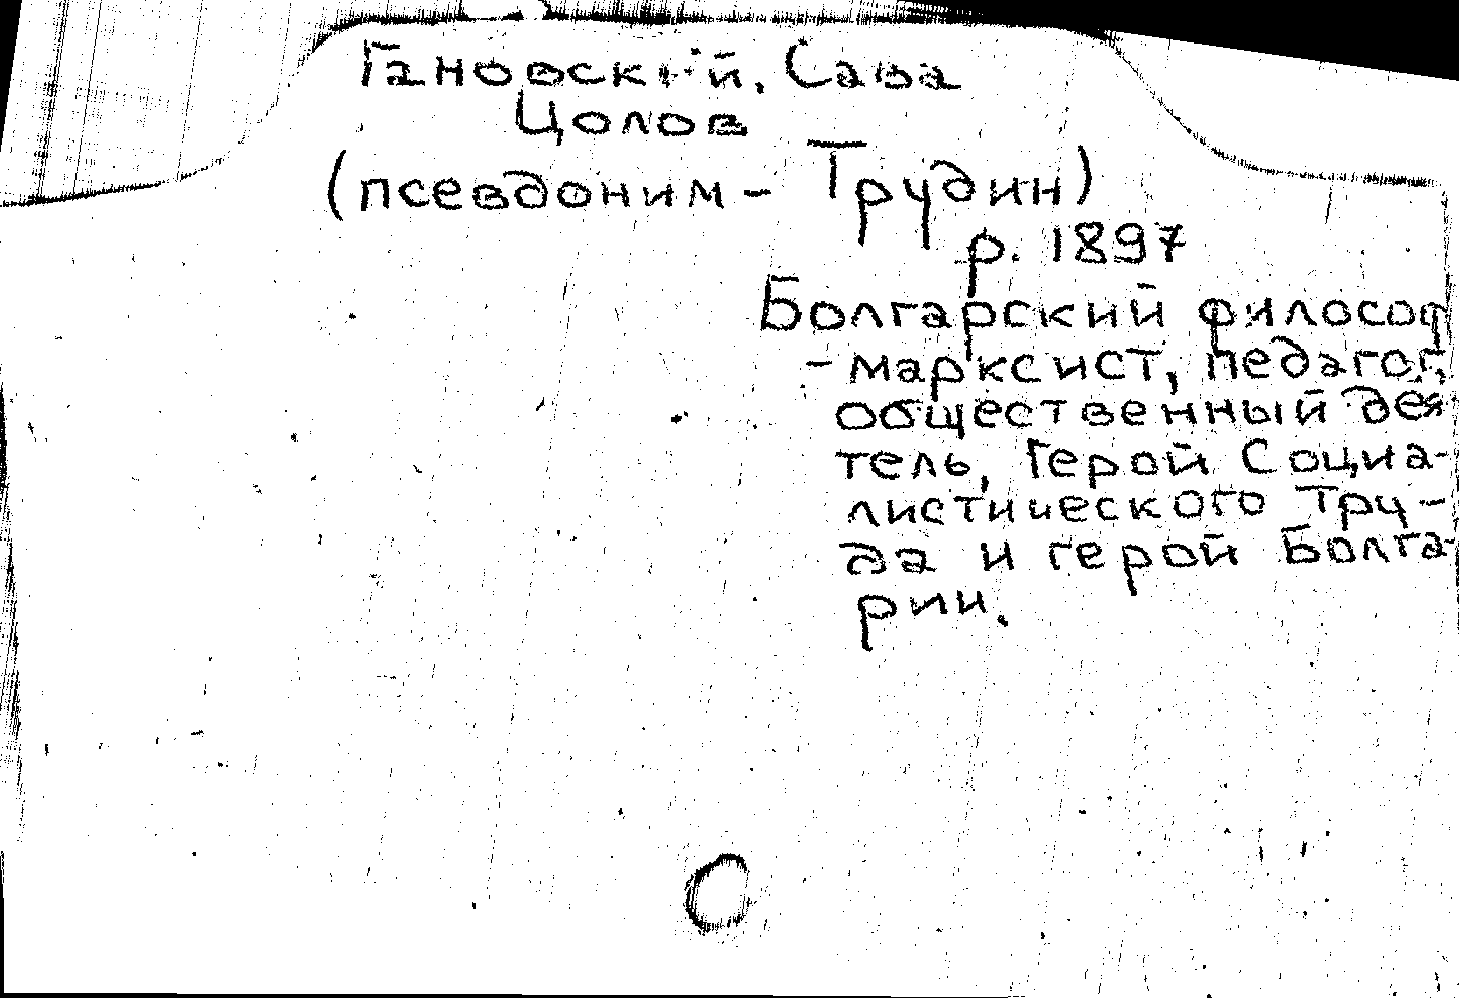 Гановский, Сава
Цолов
(псевдоним - Трудин)
р. 1897
Болгарский философ
- марксист, педагог,
общественный дея
тель, Герой Социа-
листического Тру-
да и герой Болга-
рии.